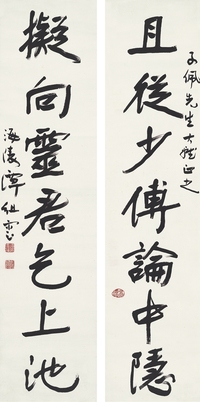 子佩先生大雅正之
且從少傅論中隱
擬向靈君乞上池
海陵譚組雲